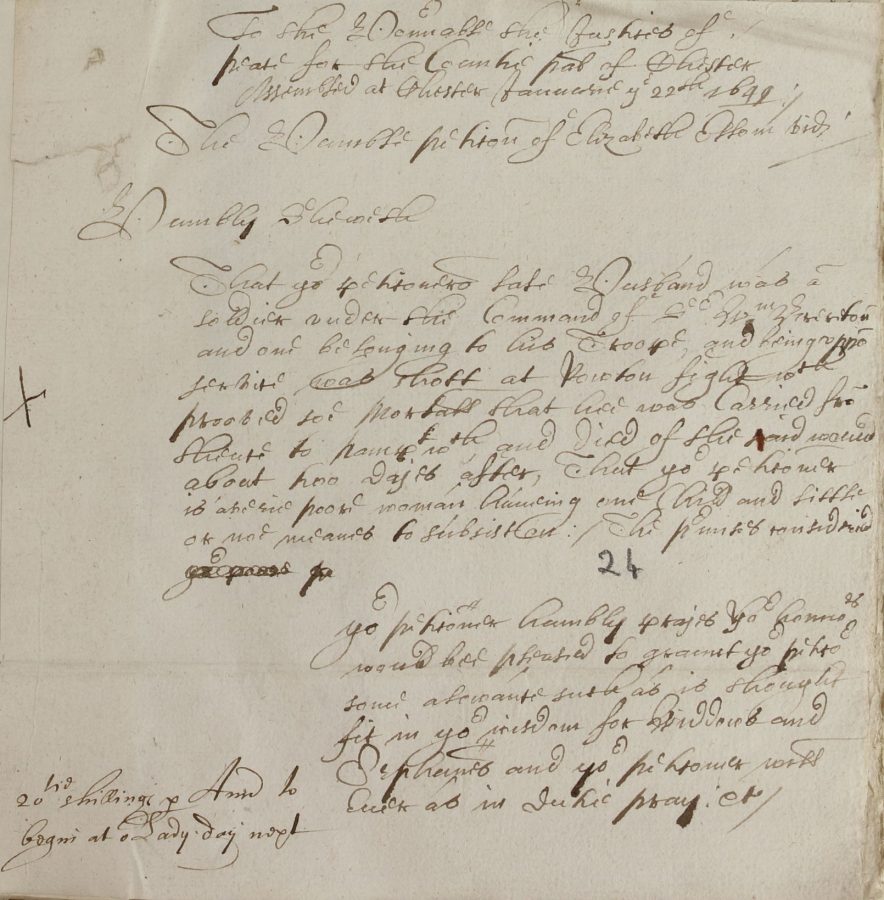 To the Honnable the Justices of
peace for the Countie pal of Chester
Assembled at Chester Januarie ye 22th 1649 :/
The Humble peticon of Elizabeth wid:
Humbly Sheweth
That yor peticoners late Husband was a
soldier vnder the Command of Sr Wm Brereton
and one belonging to his Troope, and being vppo
service was shott at fight wch
prooved soe Mortall that hee was Carried fro
thence to nampt wch and died of the said wound
about two dajes after, That yor peticoner
is a verie poore woman haueing one Child and little
or noe meanes to subsist on :/ The pmises considered
yor poore pe
24
yor peticoner humbly prajes Yor honnors
would bee pleased to graunt yor peticor
some alowance such as is thought
fit in yor wisdom for Widdows and
Orphanes and yor peticoner will
Euer as in dutie pray: &c/
X
20tie shillings p Annu to
begin at o Lady day next